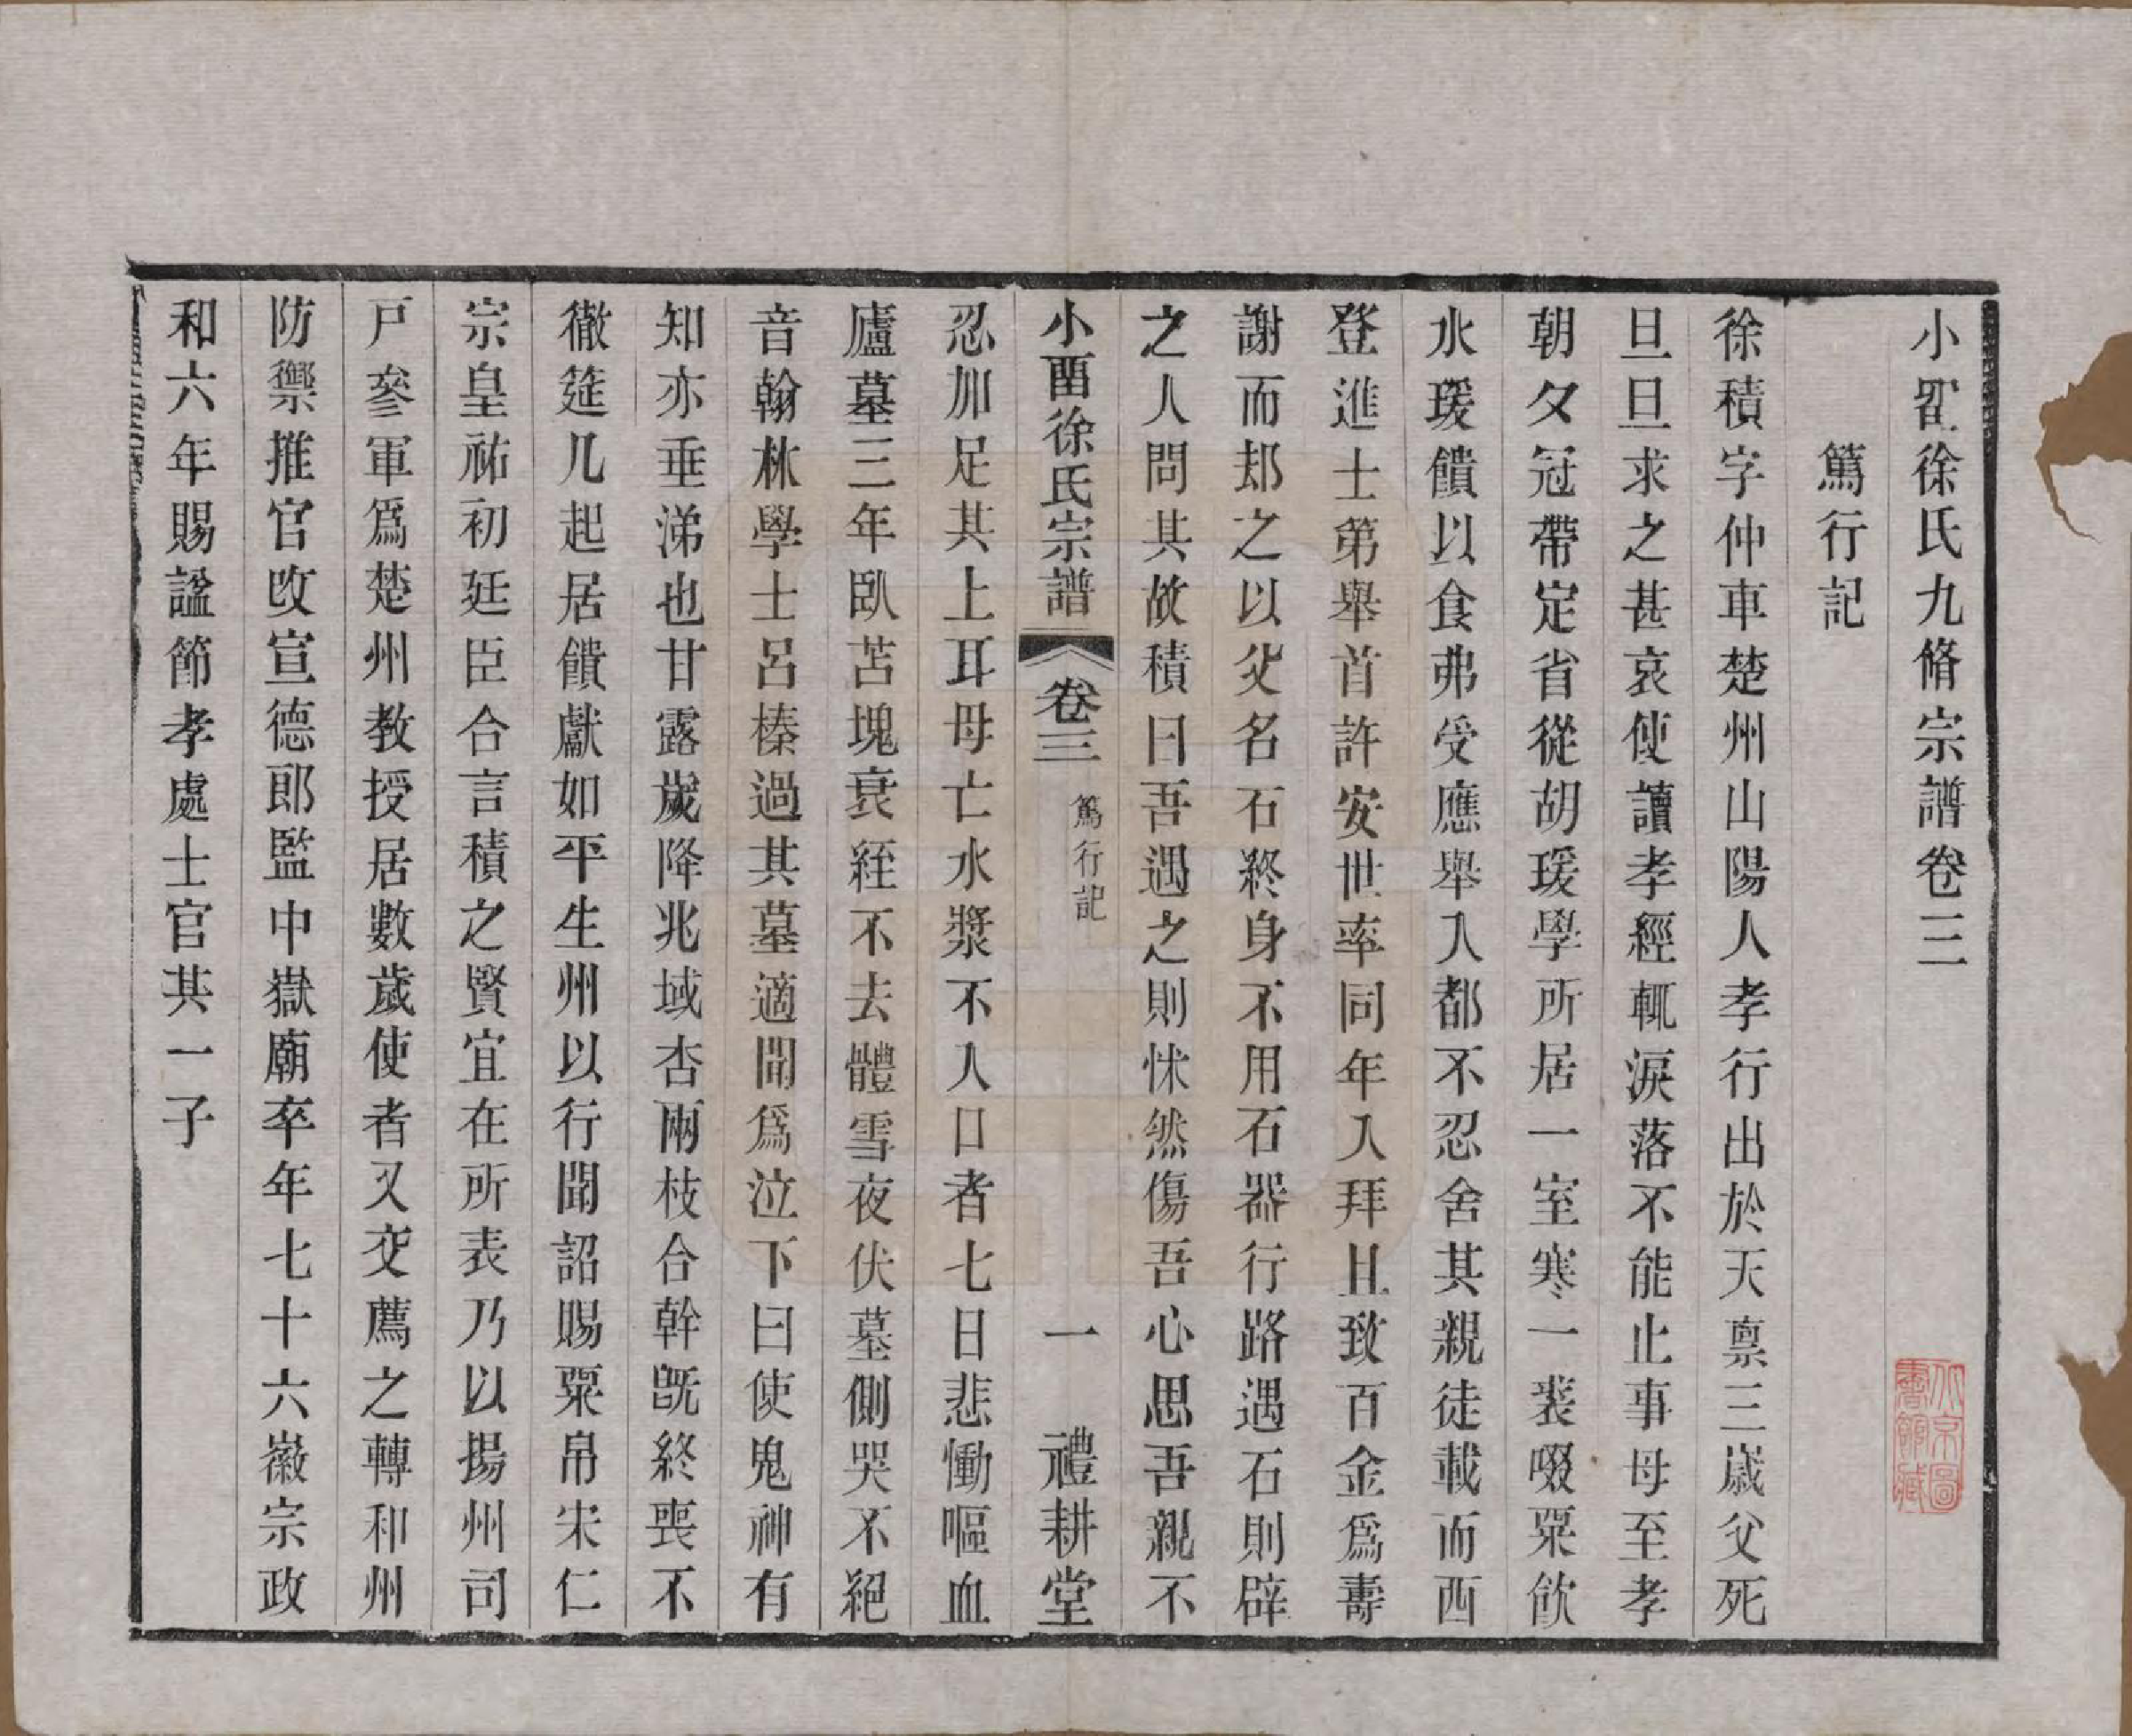 小畱徐氏九脩宗譜卷三
篤行記
徐積字仲車楚州山陽人孝行出於天稟三歲父死
旦旦求之甚哀使讀孝經輒淚落不能止事母至孝
朝夕冠帶定省從胡瑗學所居一室寒一裘啜粟飲
水瑗饋以食弗受應舉入都不忍舍其親徒載而西
登進士第舉首許安世率同年入拜且致百金爲壽
謝而却之以父名石終身不用石器行路遇石則辟
之人問其故積曰吾遇之則怵然傷吾心思吾親不
小畱徐氏宗譜 卷三 篤行記 一 禮耕堂
忍加足其上耳母亡水漿不入口者七日悲慟嘔血
廬墓三年臥苫塊衰絰不去體雪夜伏墓側哭不絕
音翰林學士呂榛過其墓適聞爲泣下曰使鬼神有
知亦垂涕也甘露歲降兆域杏兩枝合幹旣終喪不
徹筵几起居饋獻如平生州以行聞詔賜粟帛宋仁
宗皇祐初廷臣合言積之賢宜在所表乃以揚州司
戸參軍爲楚州教授居數歲使者又交薦之轉和州
防禦推官改宣德郎監中嶽廟卒年七十六徽宗政
和六年賜諡節孝處士官其一子
北京圖書館藏